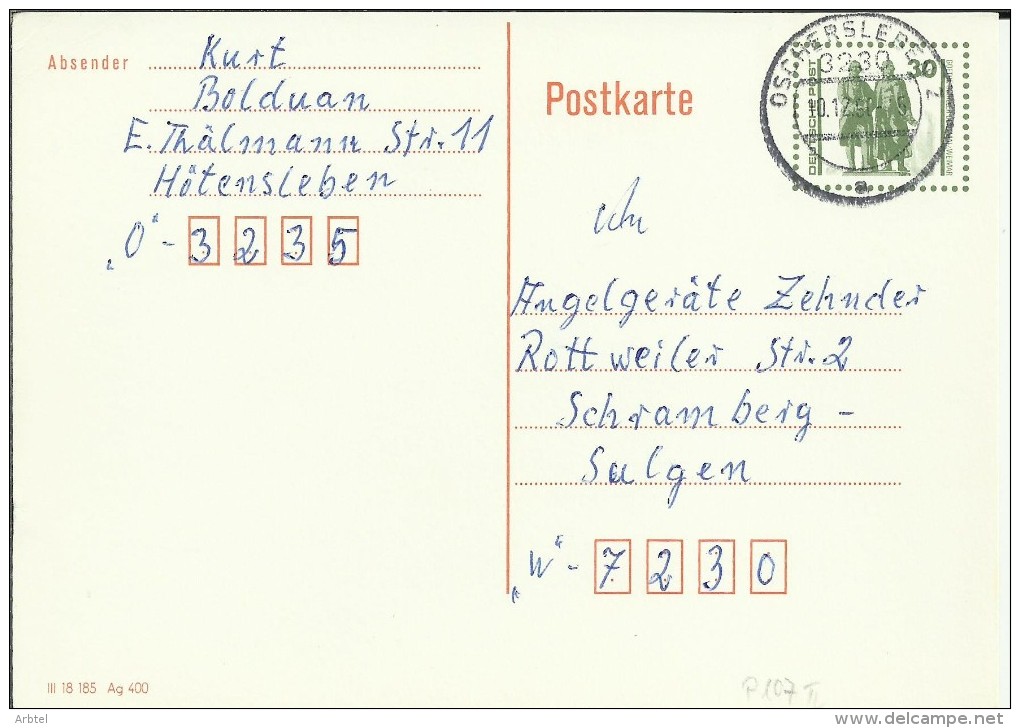 Absender
Kurt
Bolduan
E. Thälmann Str. 11
Hötensleben
„O“ - 3 2 3 5
Postkarte
OSCHERSLEBEN
3230
DEUTSCHE POST
30
a
An
Angelgeräte Zehnder
Rottweiler Str. 2
Schramberg -
Sulgen
„W“ - 7 2 3 0
III 18 185 Ag 400
P107 II
Arbtel
www.delcampe.net